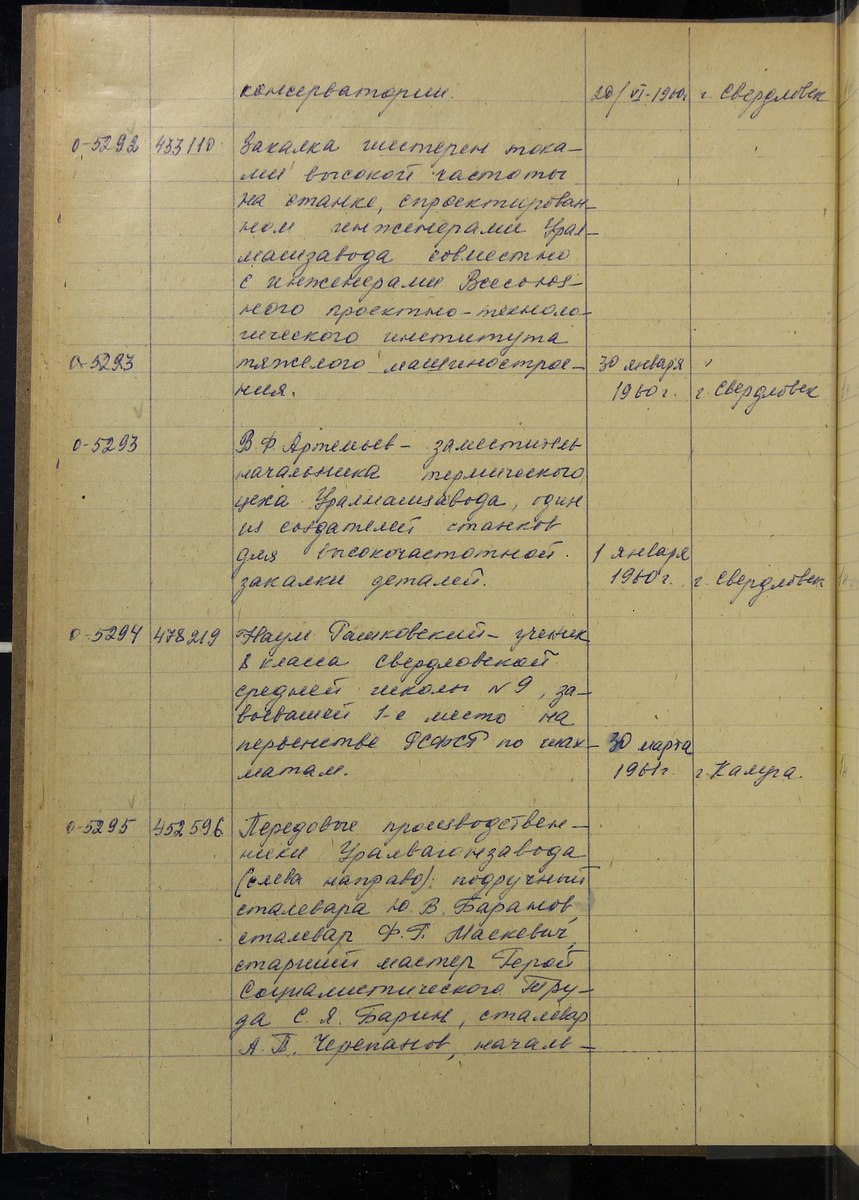 консерватории. 20/VI-1960г. г. Свердловск
0-5292 433110 Закалка шестерен тока-
ми высокой частоты
на станке, спроектирован-
ном инженерами Урал-
машзавода совместно
с инженерами Всесоюз-
ного проектно-техноло-
гического института
0-5293 тяжелого машинострое- 30 января
ния. 1960г. г. Свердловск
0-5293 В.Ф. Артемьев - заместитель
начальника термического
цеха Уралмашзавода, один
из создателей станков
для высокочастотной 1 января
закалки деталей. 1960г. г. Свердловск
0-5294 478219 Наум Рашковский - ученик
8 класса Свердловской
средней школы №9, за-
воевавшей 1-е место на
первенстве РСФСР по шах- 30 марта
матам. 1961г. г. Калуга.
0-5295 452596 Передовые производствен-
ники Уралвагонзавода
(слева направо): подручный
сталевара Ю.В. Баранов,
сталевар Ф.Г. Маскевич,
старший мастер Герой
Социалистического Тру-
да С.Я. Барин, сталевар
А.П. Черепанов, началь-